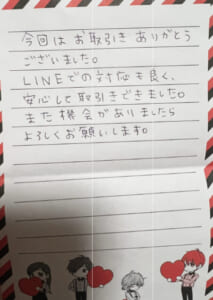 今回は お取引き ありがとう
ございました。
LINEでの対応も良く、
安心して取引きできました。
また機会がありましたら
よろしくお願いします。